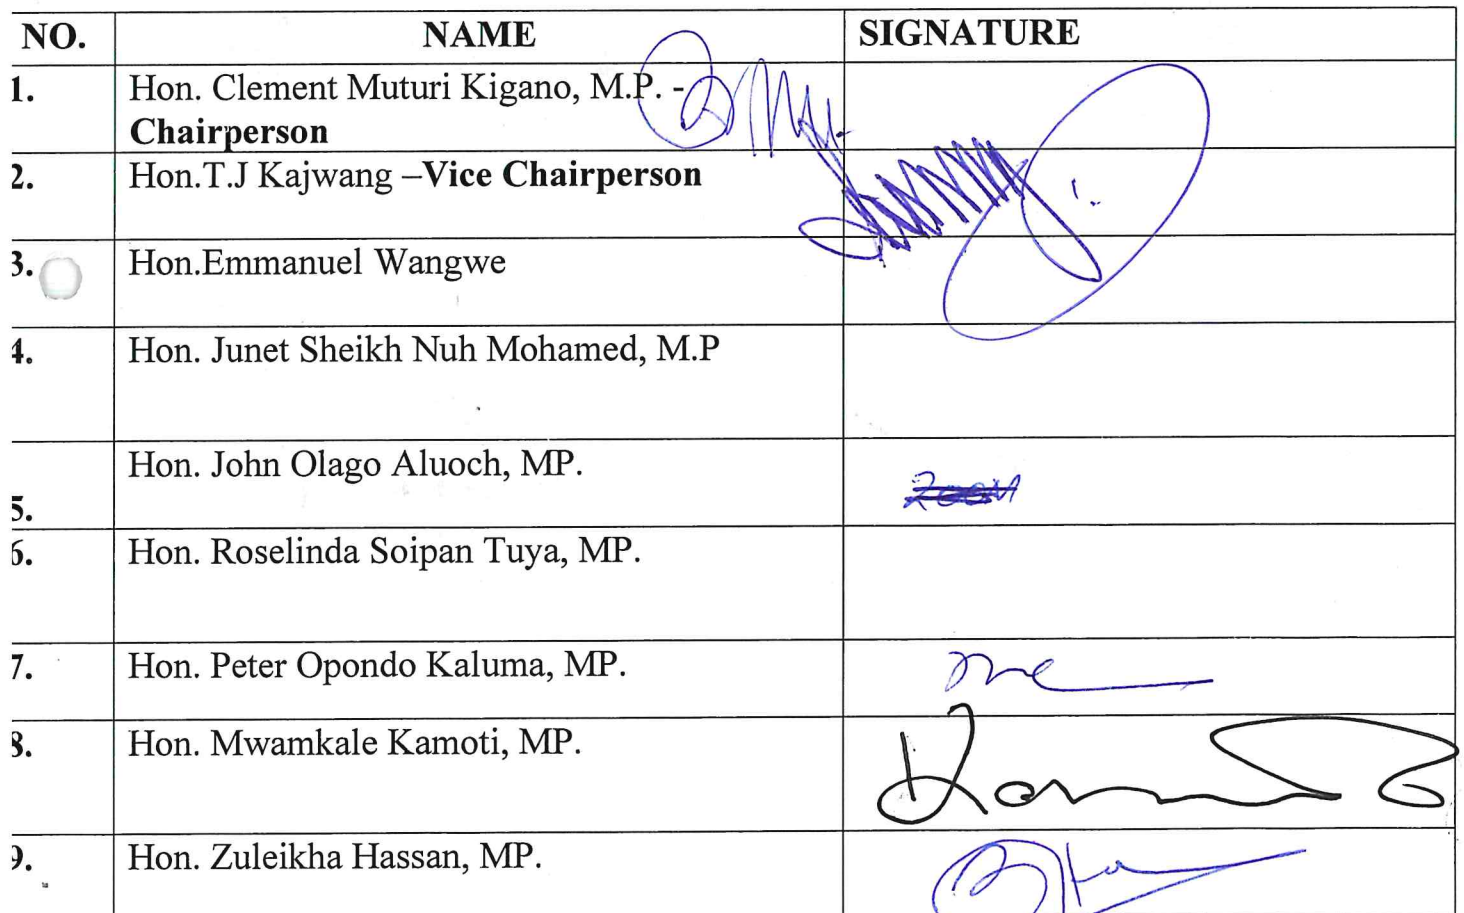 NO. NAME SIGNATURE
1. Hon. Clement Muturi Kigano, M.P. -
Chairperson
2. Hon.T.J Kajwang –Vice Chairperson
3. Hon.Emmanuel Wangwe
4. Hon. Junet Sheikh Nuh Mohamed, M.P
Hon. John Olago Aluoch, MP.
5. ZOOM
6. Hon. Roselinda Soipan Tuya, MP.
7. Hon. Peter Opondo Kaluma, MP.
8. Hon. Mwamkale Kamoti, MP.
9. Hon. Zuleikha Hassan, MP.